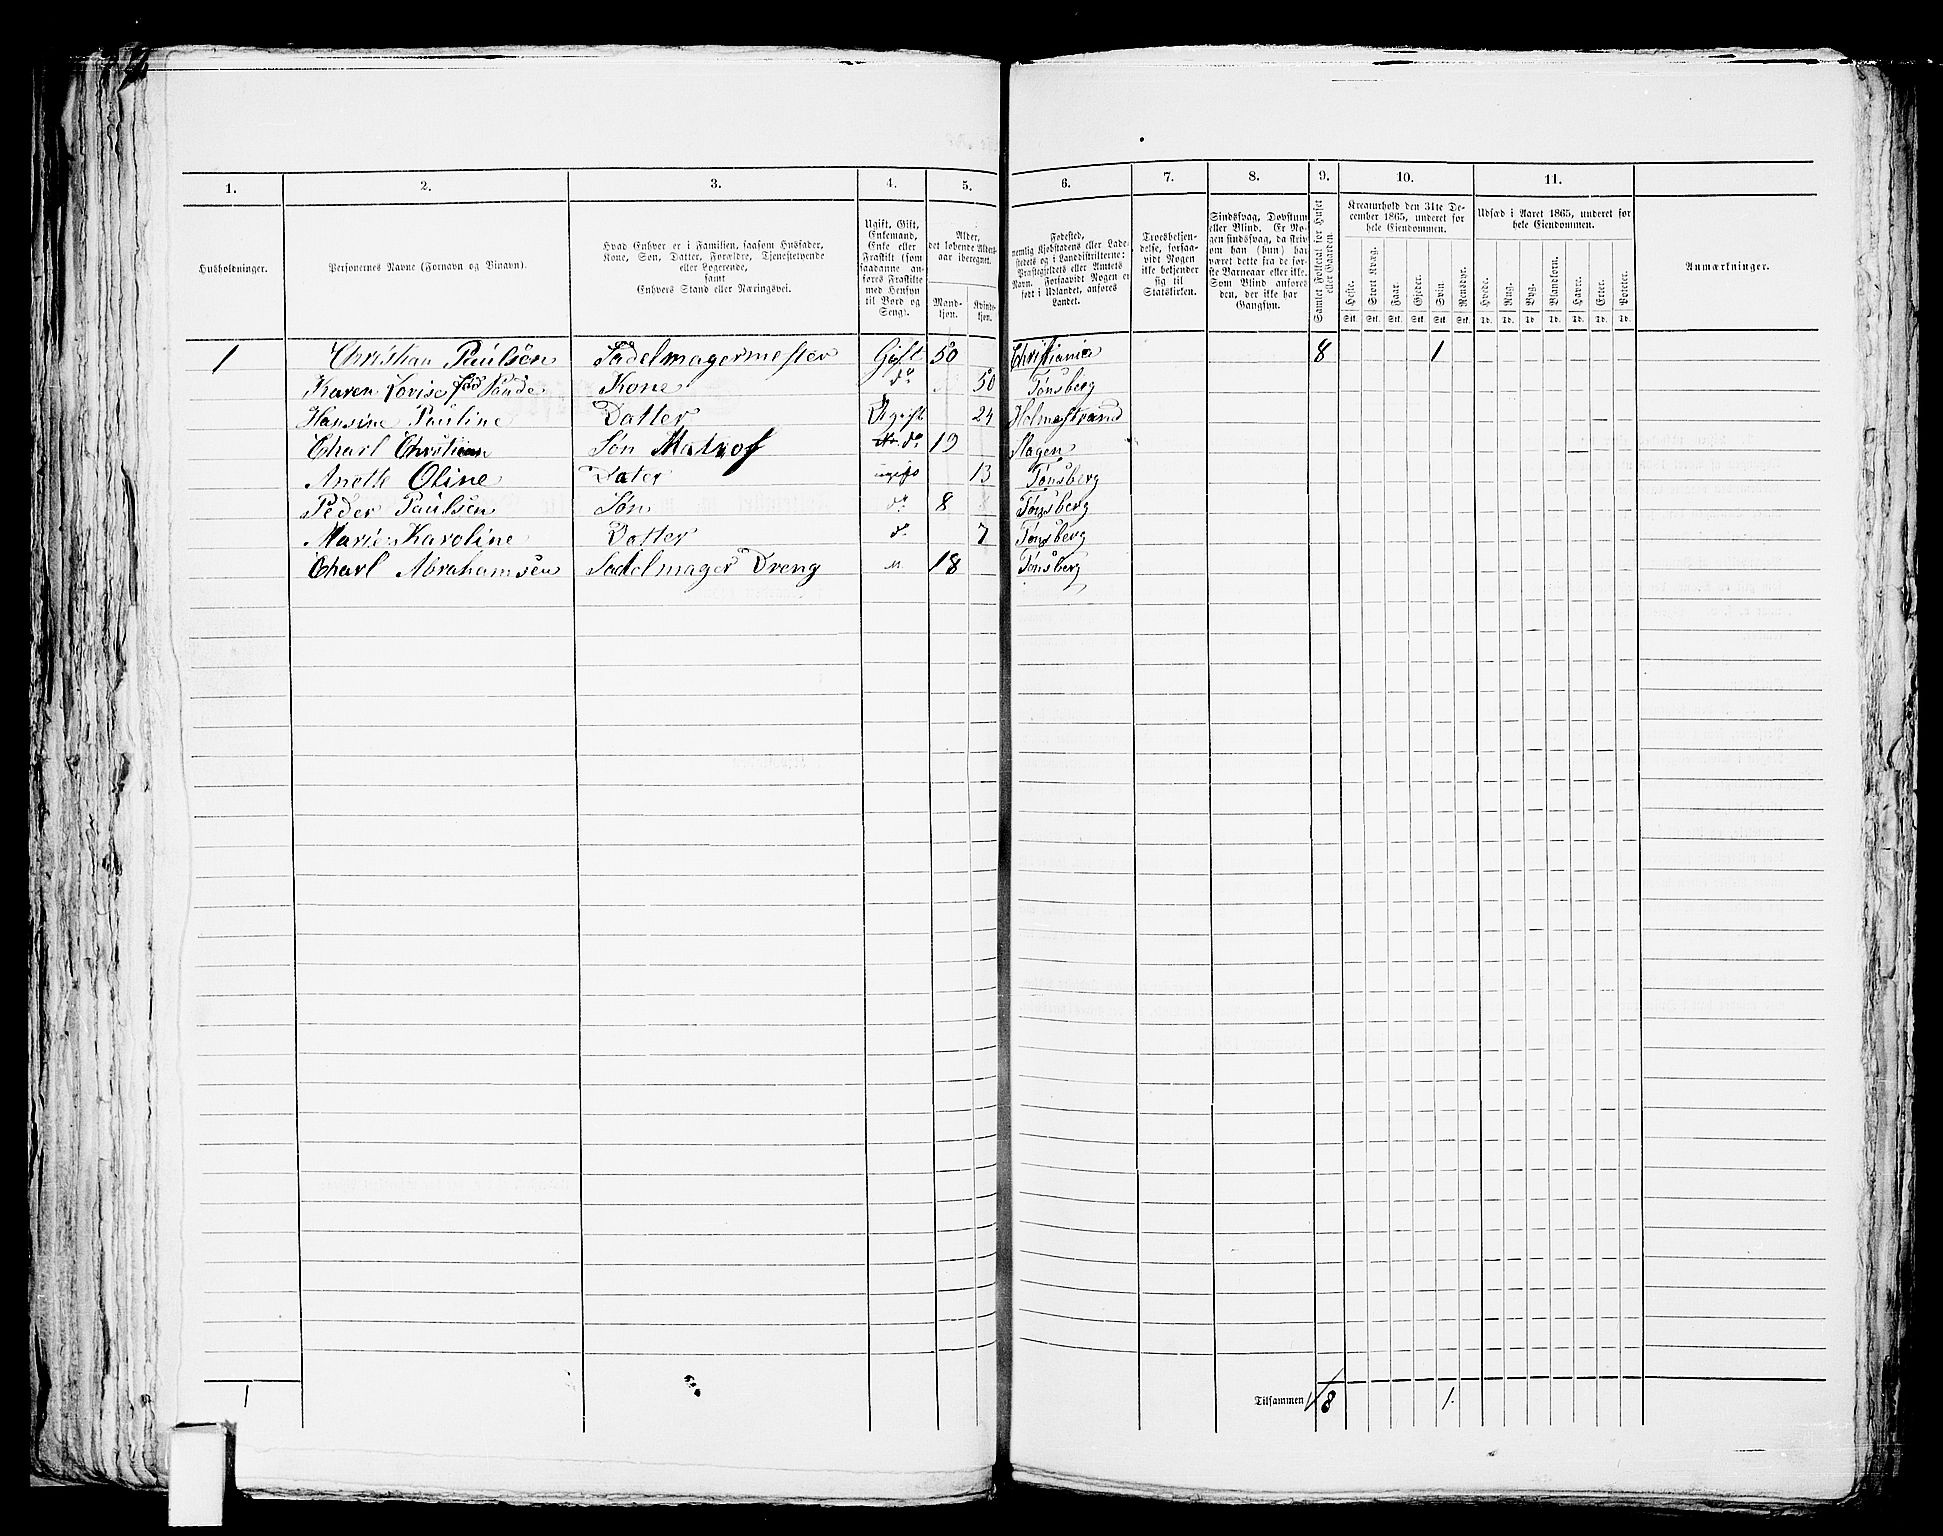 1. 2. 3. 4. 5. 6. 7. 8. 9. 10. 11.
Husholdninger.
Personernes Navne (Fornavn og Binavn).
Hvad Enhver er i Familien, saasom Husfader,
Kone, Søn, Datter, Forældre, Tjenestetyende
eller Logerende,
samt
Enhvers Stand eller Næringsvei.
Ugift, Gift,
Enkemand,
Enke eller
Fraskilt (som
saadanne an-
føres Fraskilte
med Hensyn
til Bord og
Seng).
Alder,
det løbende Alders-
aar iberegnet.
Mand-
kjøn.
Kvinde-
kjøn.
Fødested,
nemlig Kjøbstadens eller Lade-
stedets og i Landdistrikterne:
Præstegjeldets eller Amtets
Navn. Forsaavidt Nogen er
født i Udlandet, anføres
Landet.
Troesbekjen-
delse, forsaa-
vidt Nogen
ikke bekjender
sig til
Statskirken.
Sindssvag, Døvstum
eller Blind. Er No-
gen sindssvag, da skrives
om han (hun) har
været dette fra de før-
ste Barneaar eller ikke.
Som Blind anføres
den, der ikke har
Gangsyn.
Samlet Folketal for Huset
eller Gaarden.
Kreaturhold den 31te De-
cember 1865, underet for
hele Eiendommen.
Heste. Stort Kvæg. Faar. Gjeder. Svin. Rensdyr.
Stk. Stk. Stk. Stk. Stk. Stk.
Udsæd i Aaret 1865, underet for
hele Eiendommen.
Hvede. Rug. Byg. Blandkorn. Havre. Erter. Poteter.
Td. Td. Td. Td. Td. Td. Td.
Anmærkninger.
1 Christian Paulsen Sadelmagermester Gift 50 Christiania 8 1
Karen Lovise født Sande Kone do 50 Tønsberg
Hansine Pauline Datter Ugift 24 Holmestrand
Charl Christian Søn Matros do 19 Slagen
Anette Oline Dater ugift 13 Tønsberg
Peder Paulsen Søn do 8 Tønsberg
Marie Karoline Datter do 7 Tønsberg
Charl Abrahamsen Sadelmager Dreng 18 Tønsberg
1 Tilsammen 8 1.